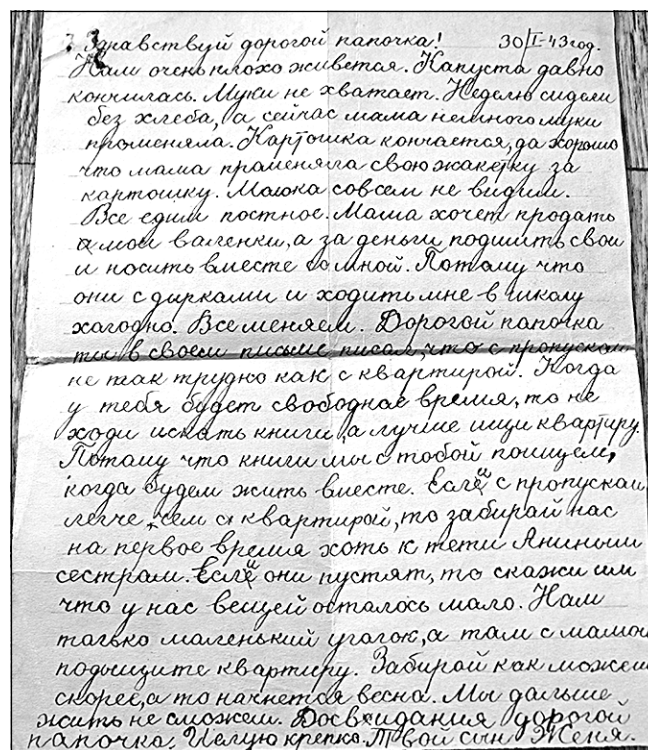 Здравствуй дорогой папочка! 30/I-43 год.
Нам очень плохо живется. Капуста давно
кончилась. Муки не хватает. Неделю сидели
без хлеба, а сейчас мама немного муки
променяла. Картошка кончается, да хорошо
что мама праменяла свою жакетку за
картошку. Молока совсем не видим.
Все едим постное. Мама хочет продать
мои валенки, а за деньги подшить свои
и носить вместе со мной. Потому что
они с дирками и ходить мне в школу
халодно. Все меняем. Дорогой папочка
ты в своем письме писал, что с пропуском
не так трудно как с квартирой. Когда
у тебя будет свободнае время, то не
ходи искать книги, а лучше ищи квартиру.
Потому что книги мы с тобой поищем,
когда будем жить вместе. Если с пропуском
легче, чем с квартирой, то забирай нас
на первое время хоть к тети Аниным
сестрам. Если они пустят, то скажи им
что у нас вещей осталось мало. Нам
только маленький уголок, а там с мамой
подыщите квартиру. Забирай как можем
скорее, а то начнется весна. Мы дальше
жить не сможем. Досвидания дорогой
папочка. Целую крепко. Твой сын Женя.